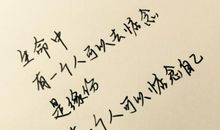 生命中
有一个人可以去惦念
是缘份
一个人可以惦念自己